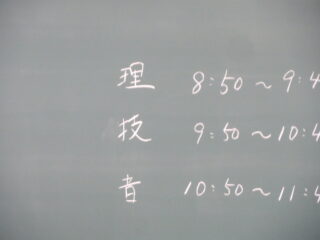 理 8:50～9:4
技 9:50～10:4
音 10:50～11:4